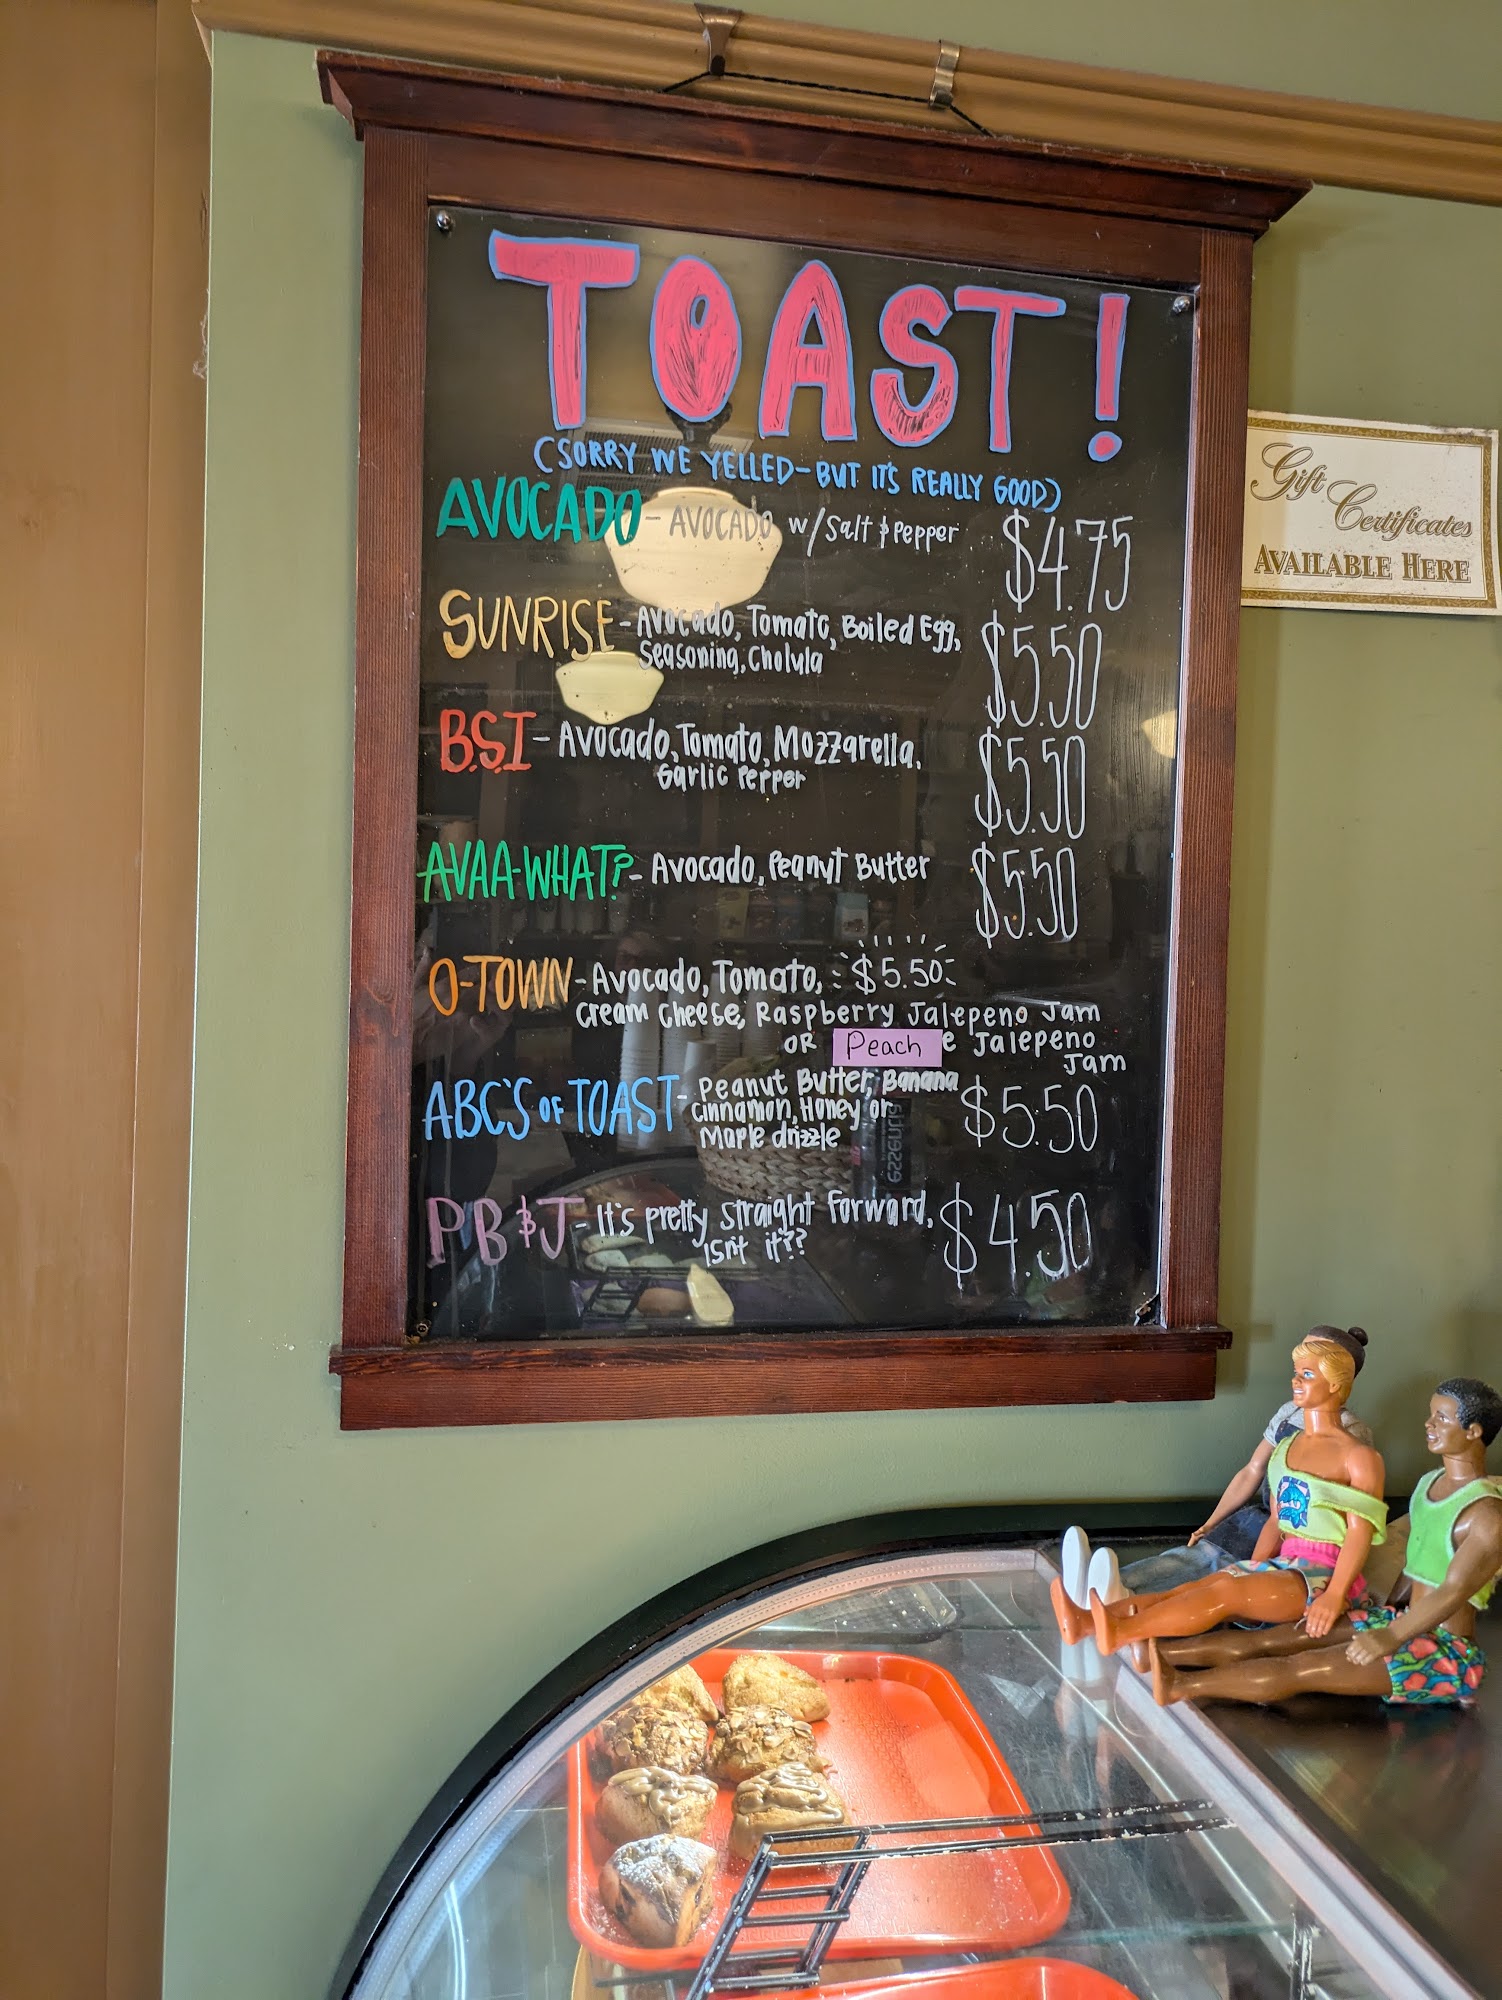 TOAST!
(SORRY WE YELLED-BUT IT'S REALLY GOOD)
AVOCADO - AVOCADO w/Salt & Pepper $4.75
SUNRISE - Avocado, Tomato, Boiled Egg, $5.50
Seasoning, Cholula
B.S.I - Avocado, Tomato, Mozzarella, $5.50
Garlic Pepper
AVAA-WHAT? - Avocado, Peanut Butter $5.50
O-TOWN - Avocado, Tomato, $5.50
Cream Cheese, Raspberry Jalepeno Jam
OR Peach e Jalepeno
Jam
ABC'S OF TOAST - Peanut Butter, Banana $5.50
Cinnamon, Honey or
Maple drizzle
PB&J - It's pretty straight forward, $4.50
isn't it??
Gift
Certificates
AVAILABLE HERE
essentia